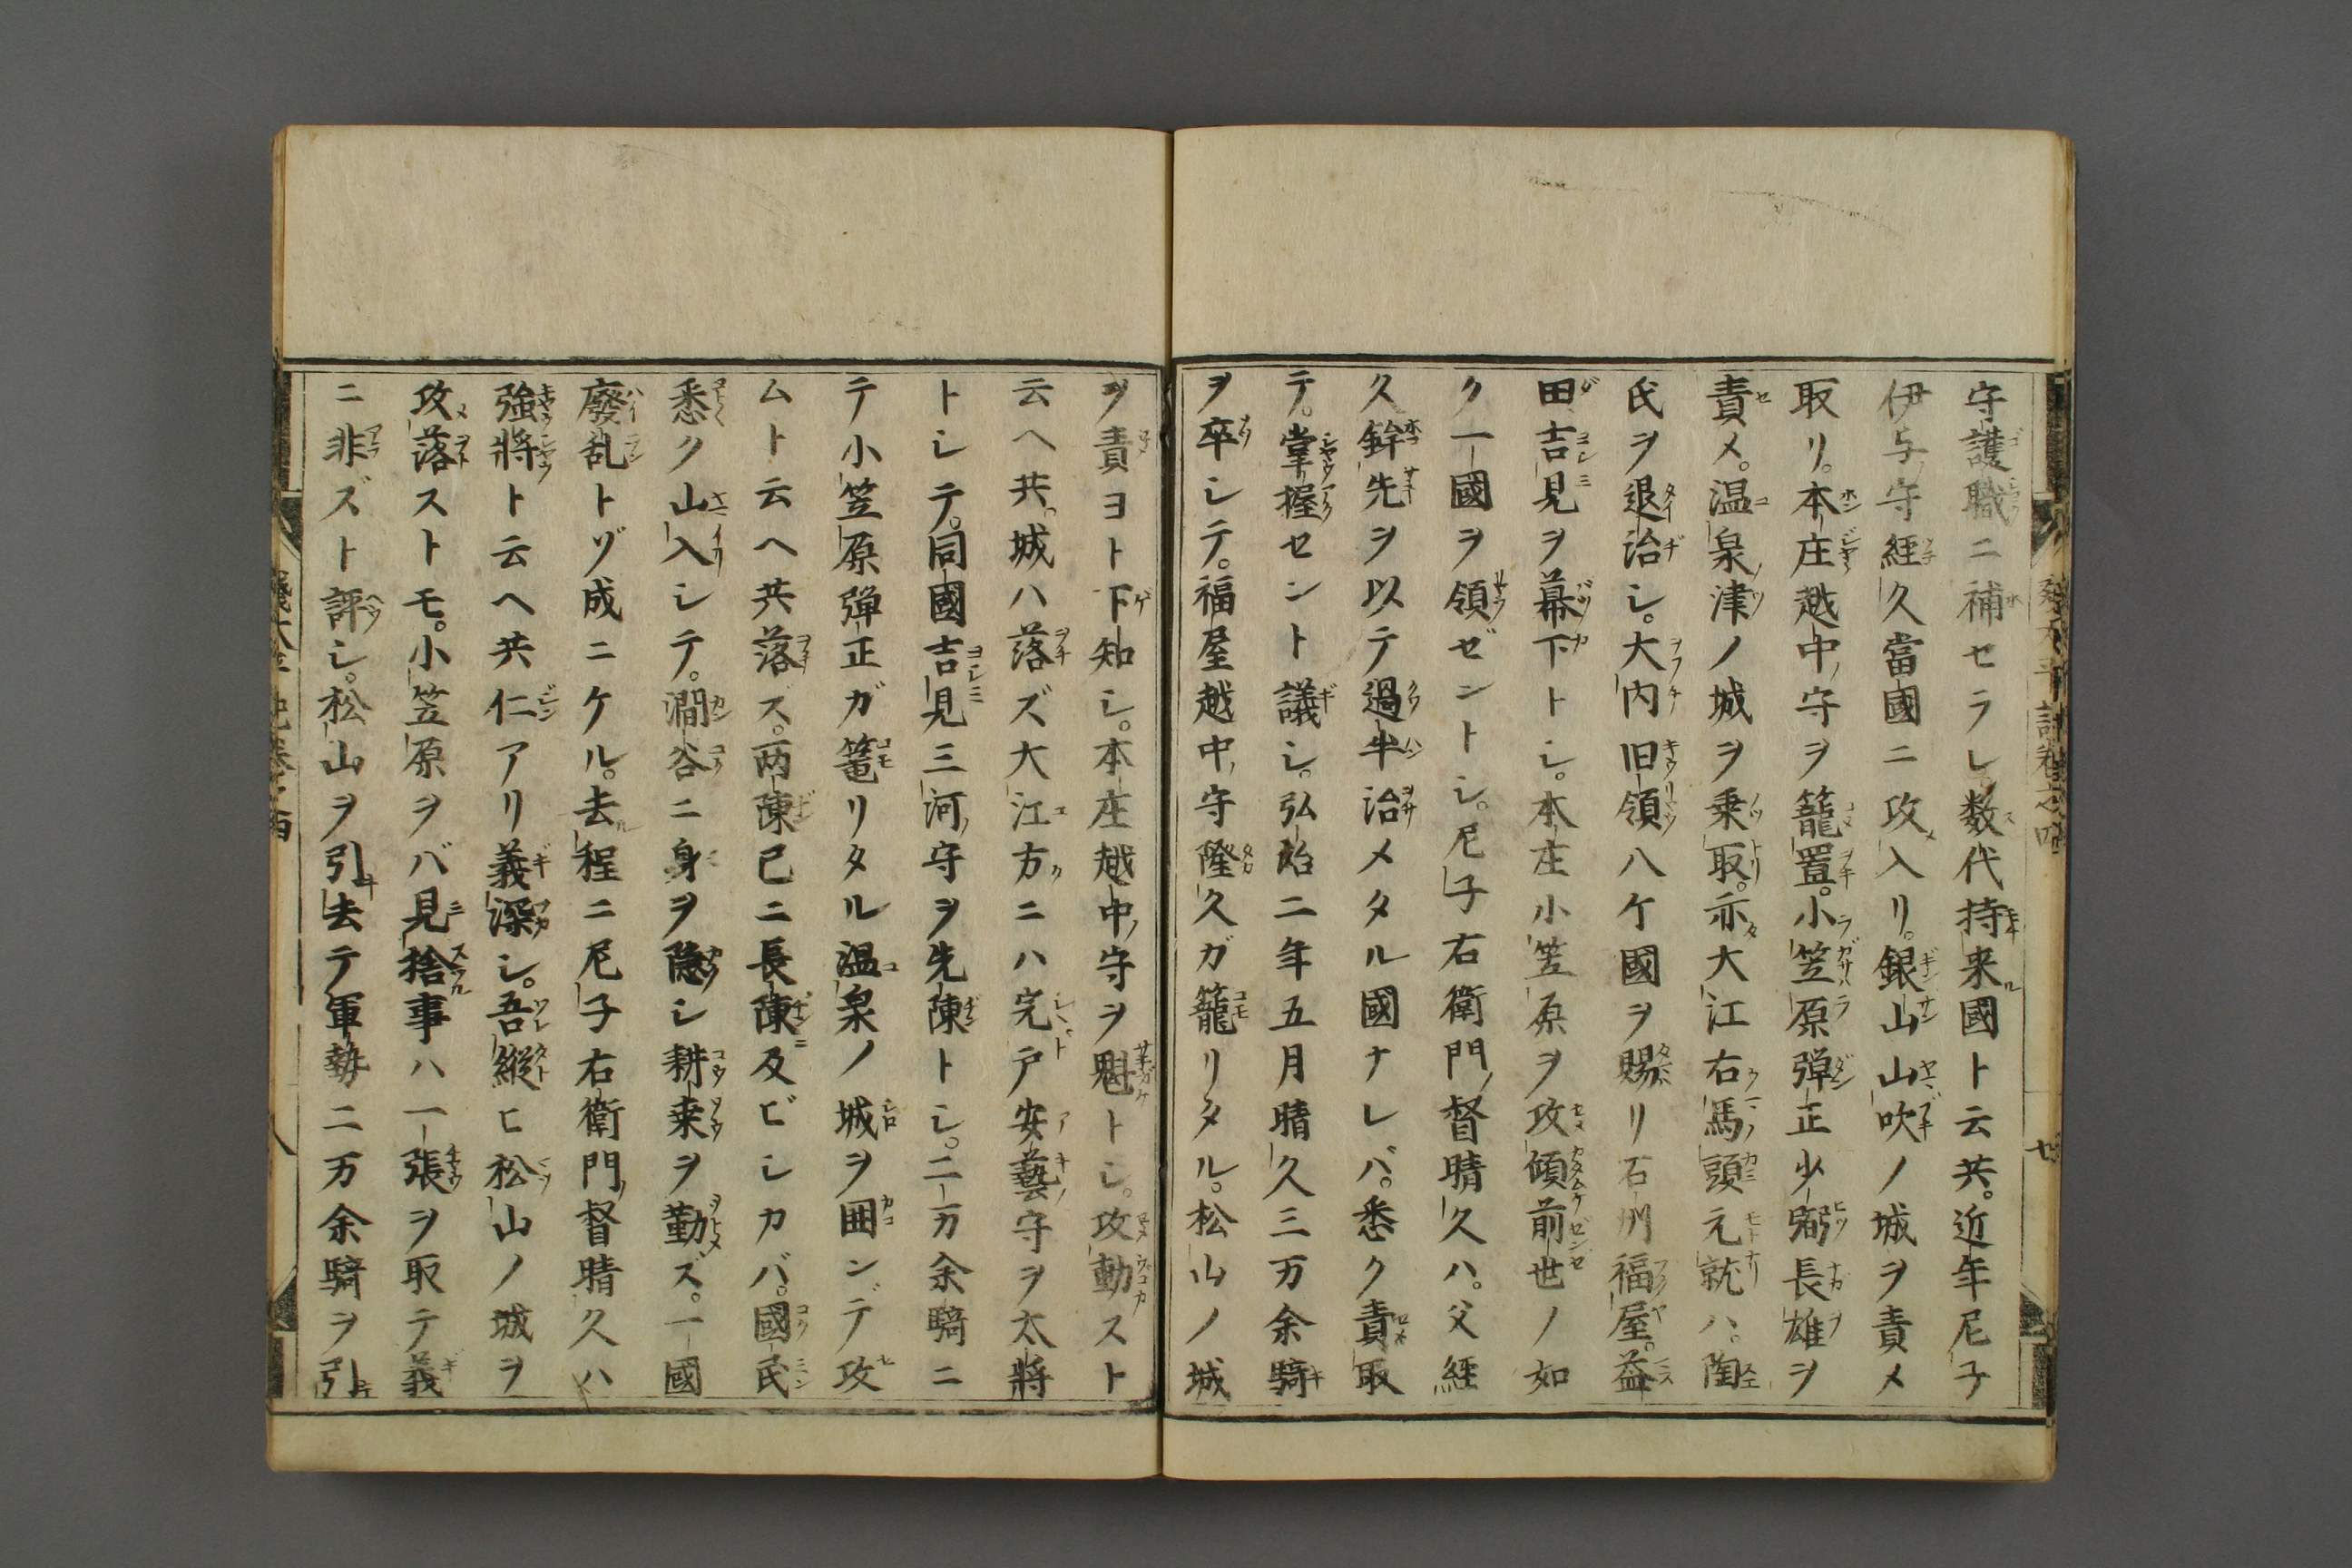 守護職ニ補セラレ。数代持来國ト云共。近年尼子
伊与守経久當國ニ攻入リ。銀山山吹ノ城ヲ責メ
取リ。本庄越中守ヲ籠置。小笠原弾正少弼長雄ヲ
責メ。温泉津ノ城ヲ乗取。亦大江右馬頭元就ハ。陶
氏ヲ退治シ。大内旧領八ケ國ヲ賜リ石州福屋。益
田吉見ヲ幕下トシ。本庄小笠原ヲ攻傾前世ノ如
ク一國ヲ領ゼントシ。尼子右衛門督晴久ハ。父経
久鉾先ヲ以テ過半治メタル國ナレバ。悉ク責取
テ。掌握セント議シ。弘治二年五月晴久三万余騎
ヲ卒シテ。福屋越中守隆久ガ籠リタル。松山ノ城
ヲ責ヨト下知シ。本庄越中守ヲ魁トシ。攻動スト
云ヘ共。城ハ落ズ大江方ニハ宍戸安藝守ヲ太將
トシテ。同國吉見三河守ヲ先陳トシ。二万余騎ニ
テ小笠原弾正ガ篭リタル温泉ノ城ヲ囲ンデ攻
ムト云ヘ共落ズ。両陳已ニ長陳及ビシカバ。國民
悉ク山入シテ。澗谷ニ身ヲ隠シ耕耒ヲ勤ズ。一國
廢乱トゾ成ニケル。去程ニ尼子右衛門督晴久ハ
強將ト云ヘ共仁アリ義深シ。吾縦ヒ松山ノ城ヲ
攻落ストモ。小笠原ヲバ見捨事ハ一張ヲ取テ義
ニ非ズト評シ。松山ヲ引去テ軍勢二万余騎ヲ引